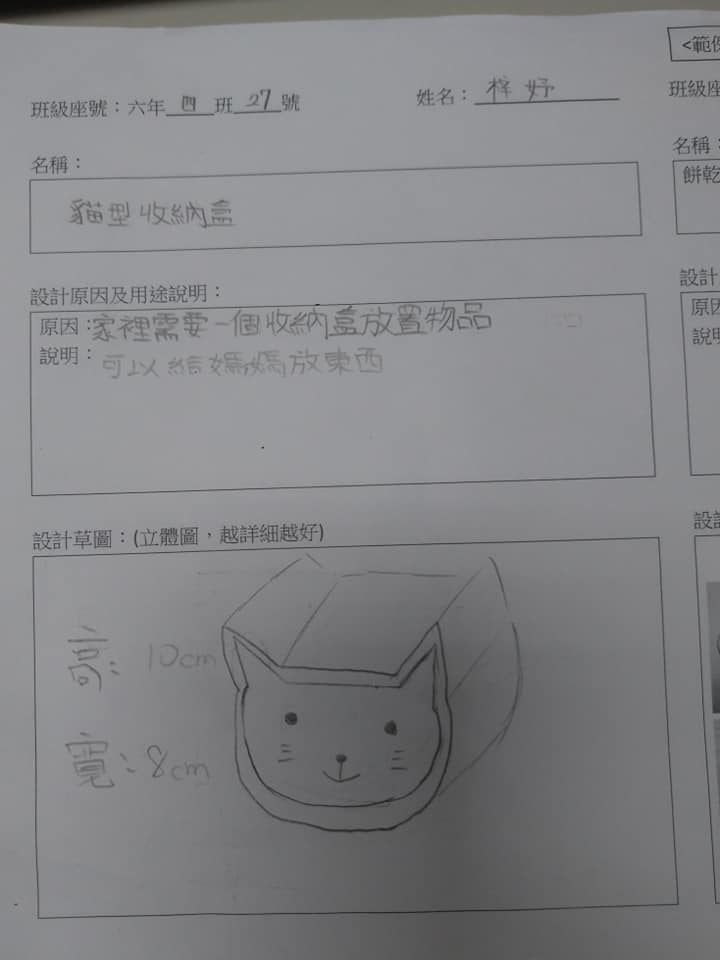 <範例
班級座號：六年四班27號 姓名：梓妤
班級座
名稱：
名稱：
貓型收納盒
餅乾
設計原因及用途說明：
設計
原因：家裡需要一個收納盒放置物品
原因
說明：可以給媽媽放東西
說明
設計草圖：(立體圖，越詳細越好)
設計
高：10cm
寬：8cm